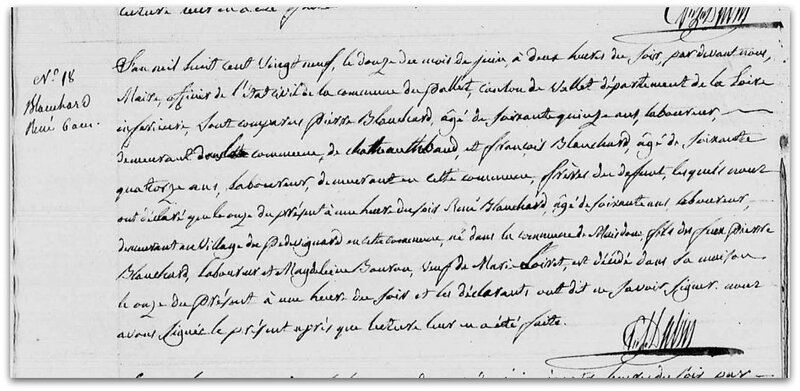 lecture leur en a été faite.
N.o 18
Blanchard
René 60 ans.
L'an mil huit cent vingt neuf, le douze du mois de juin, à deux heures du soir, par devant nous,
Maire, officier de l'état civil de la commune du Pallet, canton de Vallet département de la Loire
inférieure, sont comparus Pierre Blanchard, âgé de soixante quinze ans, laboureur,
demeurant commune, de chateauthebaud, et françois Blanchard, âgé de soixante
quatorze ans, laboureur, demeurant en cette commune, frères du defunt, lesquels nous
ont déclaré que le onze du présent à une heure du soir René Blanchard, âgé de soixante ans, laboureur,
demeurant au village du en cette commune, né dans la commune de Maisdon, fils de feux Pierre
Blanchard, laboureur et Magdeleine Bouron, veuf de Marie Loiret, est décédé dans sa maison
le onze du présent à une heure du soir et les déclarants ont dit ne savoir signer nous
avons signé le présent après que lecture leur en a été faite.